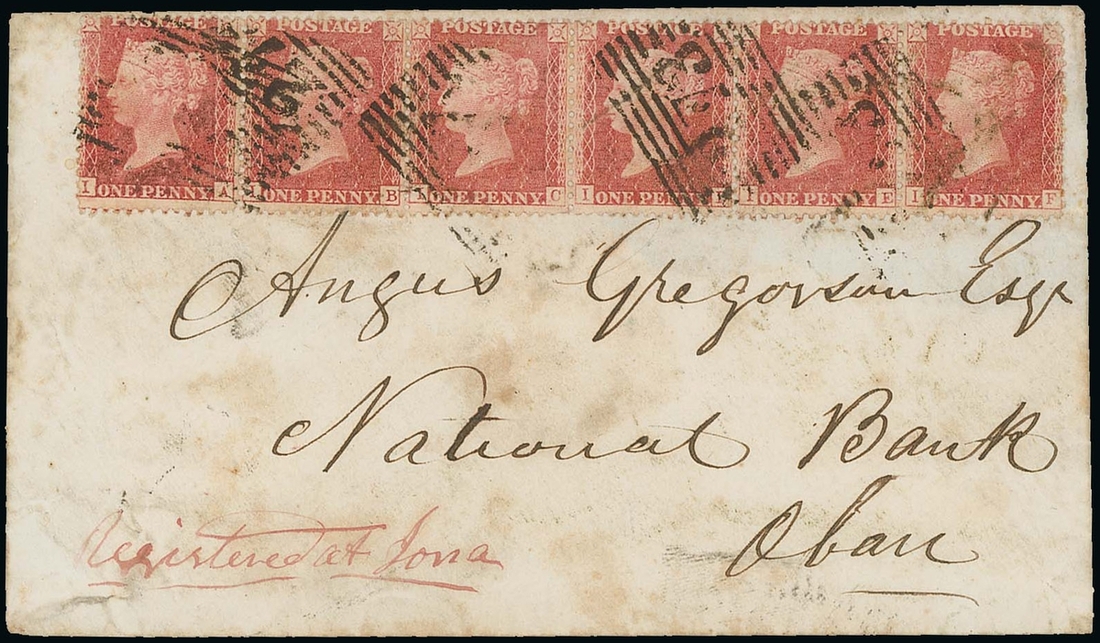 POSTAGE POSTAGE POSTAGE POSTAGE POSTAGE
I ONE PENNY A I ONE PENNY B ONE PENNY C I ONE PENNY I ONE PENNY E I ONE PENNY F
Angus Gregorson Esqr
National Bank
Oban
Registered at Iona